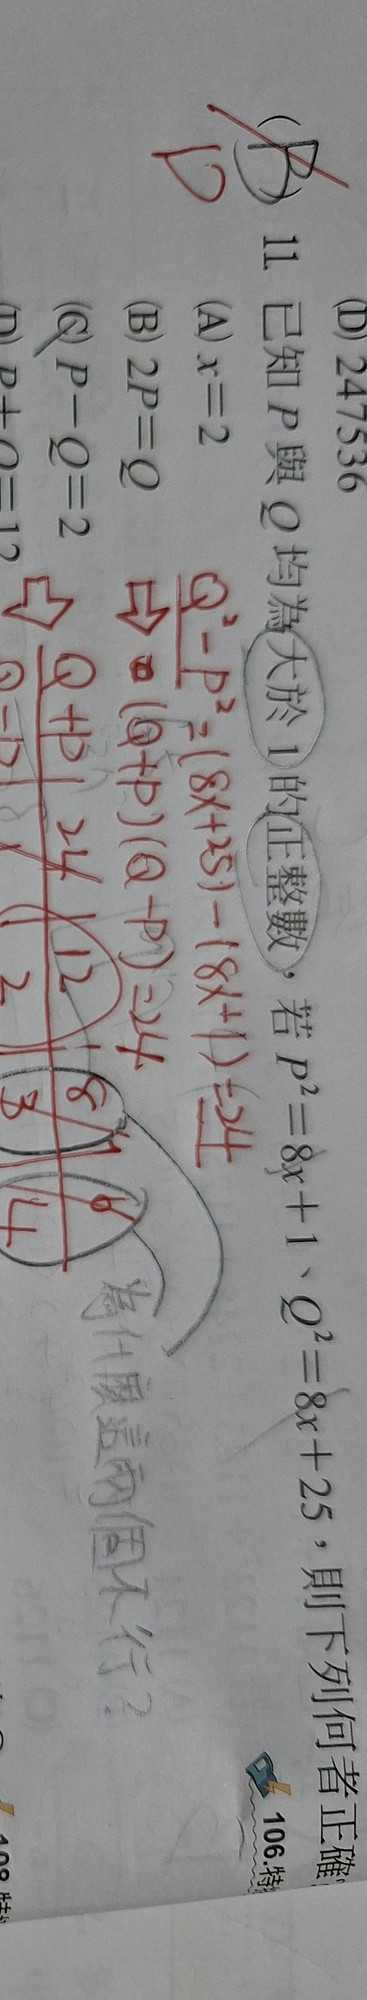 (D) 247536
(B) 11. 已知 P 與 Q 均為大於 1 的正整數，若 P²=8x+1、Q²=8x+25，則下列何者正確
D
106.特
(A) x=2
Q²-P²=(8x+25)-(8x+1)=24
(B) 2P=Q
⇨ (Q+P)(Q-P)=24
(C) P-Q=2
⇨ Q+P 24 12 8 6
為什麼這兩個不行?
(D) P+Q=12
Q-P 1 2 3 4
108.特